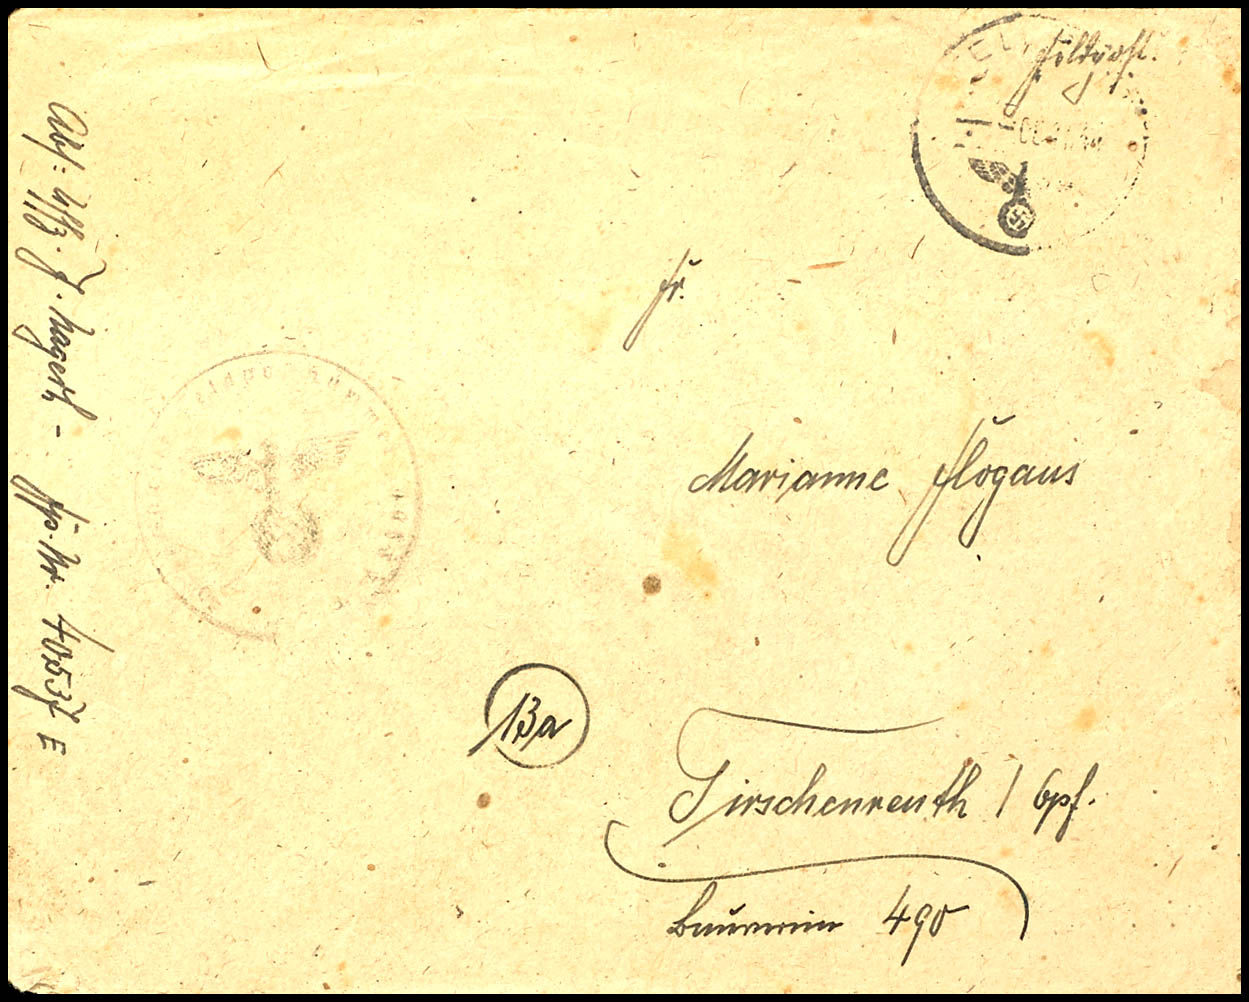 Feldpost.
Fr.
Marianne Flogaus
13a
Tirschenreuth / Opf.
Bauverein 490
Abs: Uffz. J. Hagerth - Fp. Nr. 40537 E